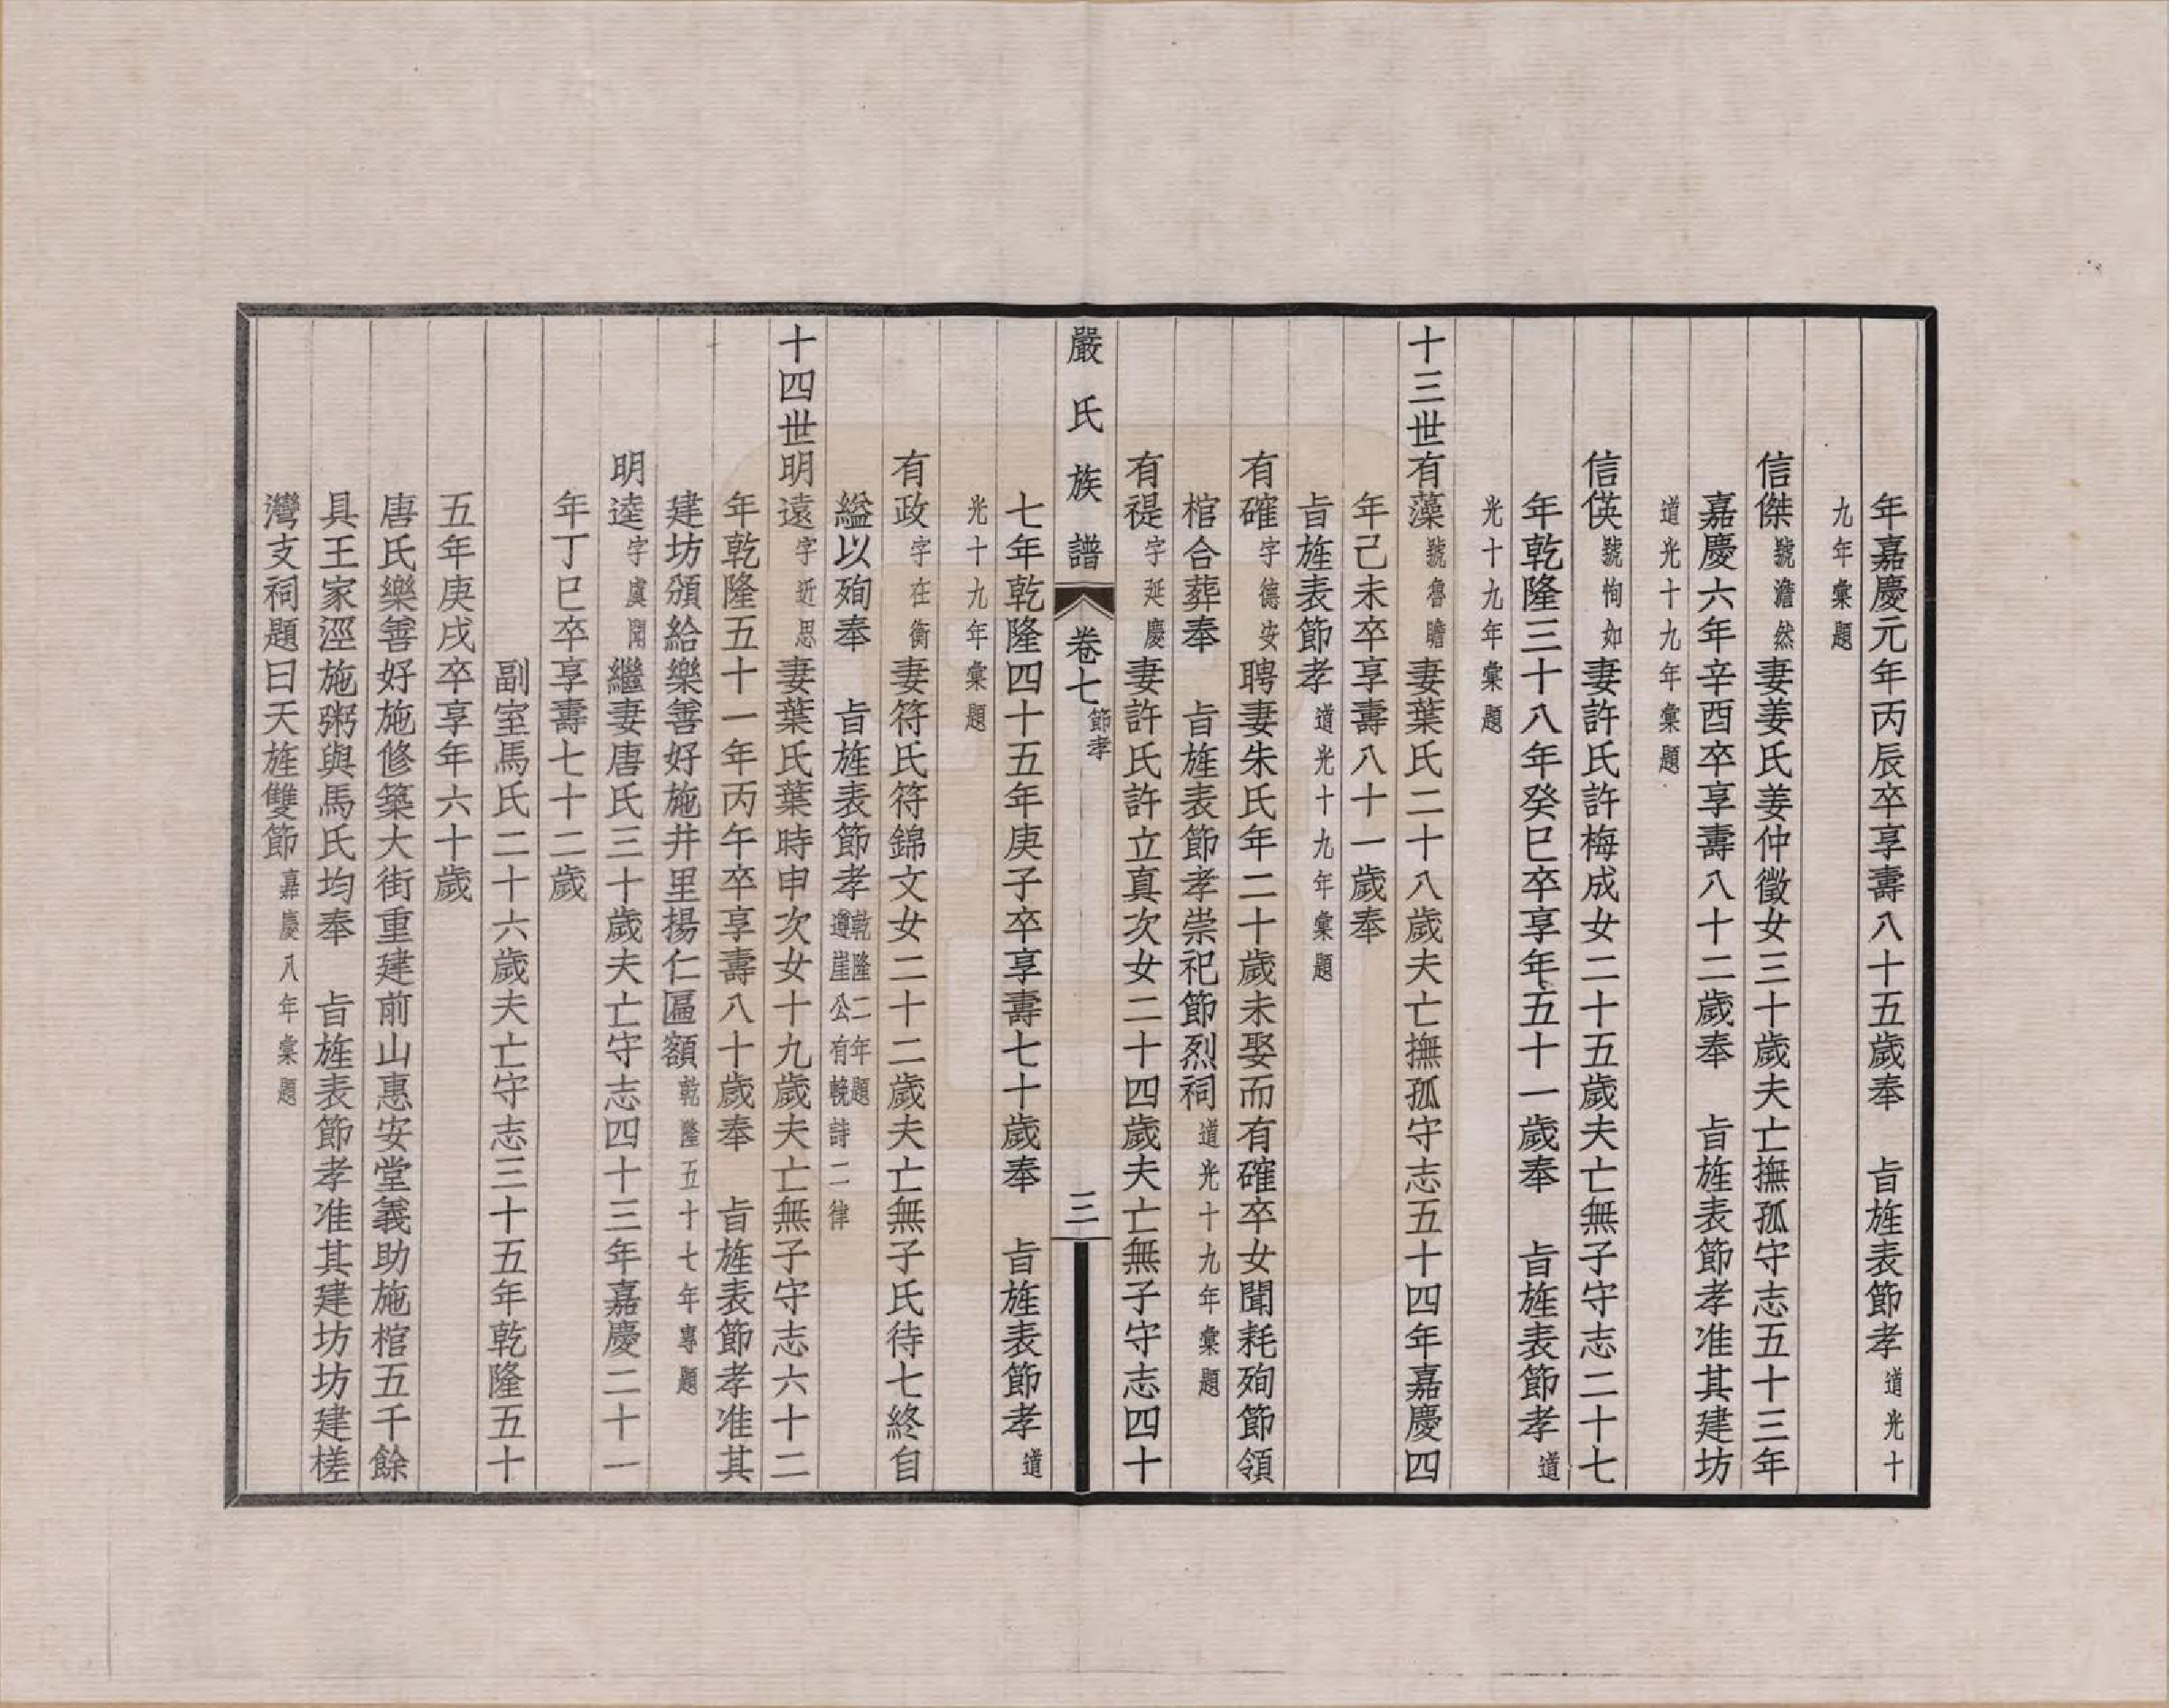 年嘉慶元年丙辰卒享壽八十五歲奉　旨旌表節孝道光十
九年彙題
信傑號澹然妻姜氏姜仲徵女三十歲夫亡撫孤守志五十三年
嘉慶六年辛酉卒享壽八十二歲奉　旨旌表節孝准其建坊
道光十九年彙題
信偀號恂如妻許氏許梅成女二十五歲夫亡無子守志二十七
年乾隆三十八年癸巳卒享年五十一歲奉　旨旌表節孝道
光十九年彙題
十三世有藻號魯瞻妻葉氏二十八歲夫亡撫孤守志五十四年嘉慶四
年己未卒享壽八十一歲奉
旨旌表節孝道光十九年彙題
有確字德安聘妻朱氏年二十歲未娶而有確卒女聞耗殉節領
棺合葬奉　旨旌表節孝崇祀節烈祠道光十九年彙題
有禔字延慶妻許氏許立真次女二十四歲夫亡無子守志四十
嚴氏族譜　卷七節孝　三
七年乾隆四十五年庚子卒享壽七十歲奉　旨旌表節孝道
光十九年彙題
有政字在衡妻符氏符錦文女二十二歲夫亡無子氏待七終自
縊以殉奉　旨旌表節孝乾隆二年題遵崖公有輓詩二律
十四世明遠字近思妻葉氏葉時申次女十九歲夫亡無子守志六十二
年乾隆五十一年丙午卒享壽八十歲奉　旨旌表節孝准其
建坊頒給樂善好施井里揚仁匾額乾隆五十七年專題
明逵字虞聞繼妻唐氏三十歲夫亡守志四十三年嘉慶二十一
年丁巳卒享壽七十二歲
副室馬氏二十六歲夫亡守志三十五年乾隆五十
五年庚戌卒享年六十歲
唐氏樂善好施修築大街重建前山惠安堂義助施棺五千餘
具王家涇施粥與馬氏均奉　旨旌表節孝准其建坊坊建槎
灣支祠題曰天旌雙節嘉慶八年彙題